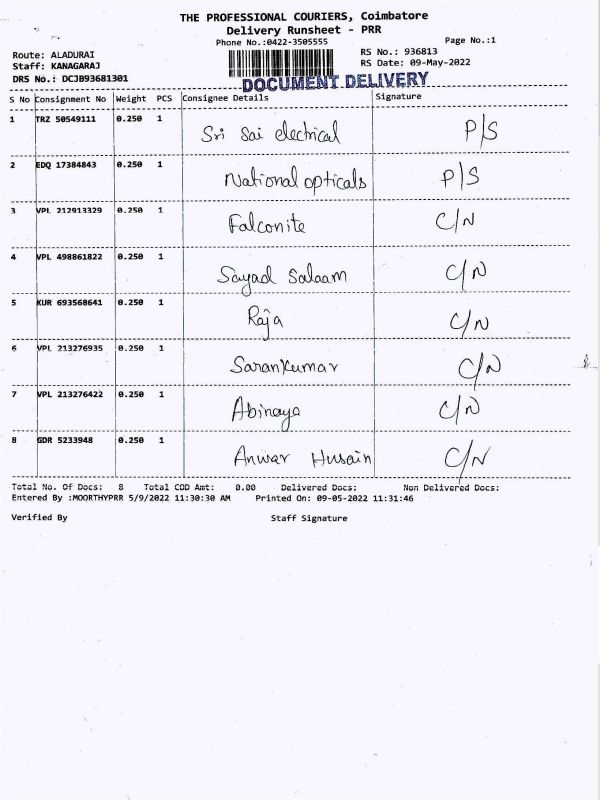 THE PROFESSIONAL COURIERS, Coimbatore
Delivery Runsheet - PRR
Phone No.:0422-3505555
Page No.:1
Route: ALADURAI
RS No.: 936813
Staff: KANAGARAJ
RS Date: 09-May-2022
DRS No.: DCJB93681301
DOCUMENT DELIVERY
S No Consignment No Weight PCS Consignee Details Signature
1 TRZ 50549111 0.250 1 Sri Sai electrical P/S
2 EDQ 17384843 0.250 1 National opticals P/S
3 VPL 212913329 0.250 1 Falconite C/N
4 VPL 498861822 0.250 1 Sayad Salaam C/N
5 KUR 693568641 0.250 1 Raja C/N
6 VPL 213276935 0.250 1 Sarankumar C/N
7 VPL 213276422 0.250 1 Abinaya C/N
8 GDR 5233948 0.250 1 Anwar Husain C/N
Total No. Of Docs: 8 Total COD Amt: 0.00 Delivered Docs: Non Delivered Docs:
Entered By :MOORTHYPRR 5/9/2022 11:30:30 AM Printed On: 09-05-2022 11:31:46
Verified By Staff Signature